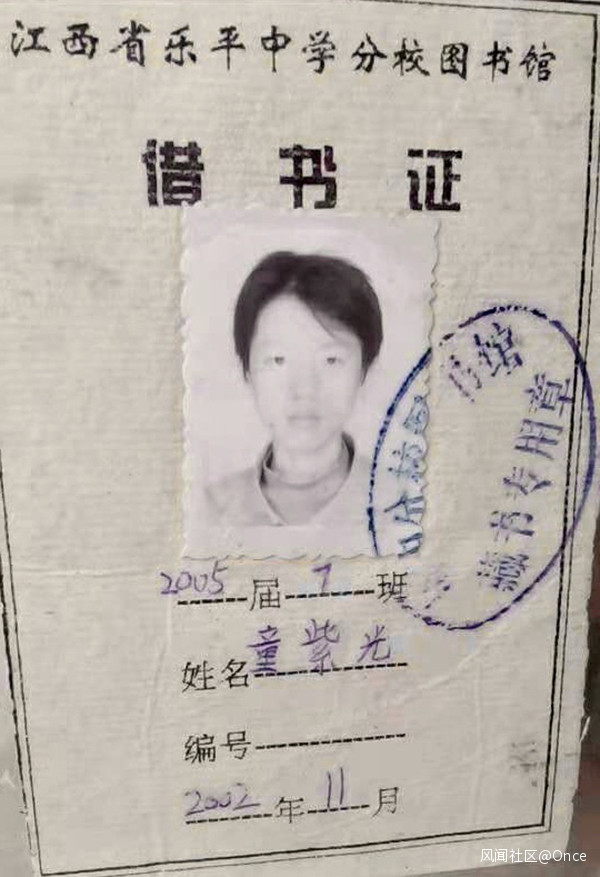 江西省乐平中学分校图书馆
借书证
书馆
藏书专用章
2005届7班
姓名童紫光
编号
2002年11月
风闻社区@Once